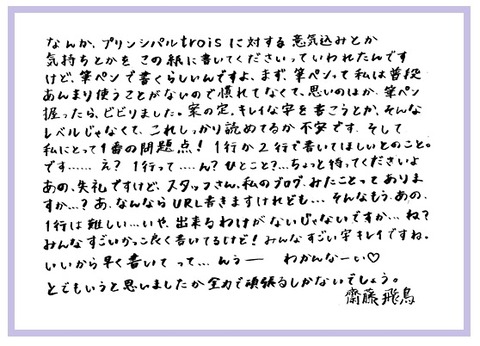 なんか、プリンシパルtroisに対する意気込みとか
気持ちとかをこの紙に書いてくださいっていわれたんです
けど、筆ペンで書くらしいんですよ、まず、筆ペンって私は普段
あんまり使うことがないので慣れてなくて、思いのほか、筆ペン
握ったら、ビビりました。案の定、キレイな字を書こうとか、そんな
レベルじゃなくて、これしっかり読めてるか不安です。そして
私にとって1番の問題点!1行か2行で書いてほしいとのこと。
です……え?1行って…ん?ひとこと?…ちょっと待ってくださいよ
あの、失礼ですけど、スタッフさん、私のブログ、みたことってありま
すか…?あ、なんならURL書きますけれども…そんなもう、あの、
1行は難しい…いや、出来るわけがないじゃないですか…ね?
みんなすごいかっこ良く書いてるけど!みんなすごい字キレイですね。
いいから早く書いてって…んぅー わかんなーい♡
とでもいうと思いましたか全力で頑張るしかないでしょう。
齋藤飛鳥